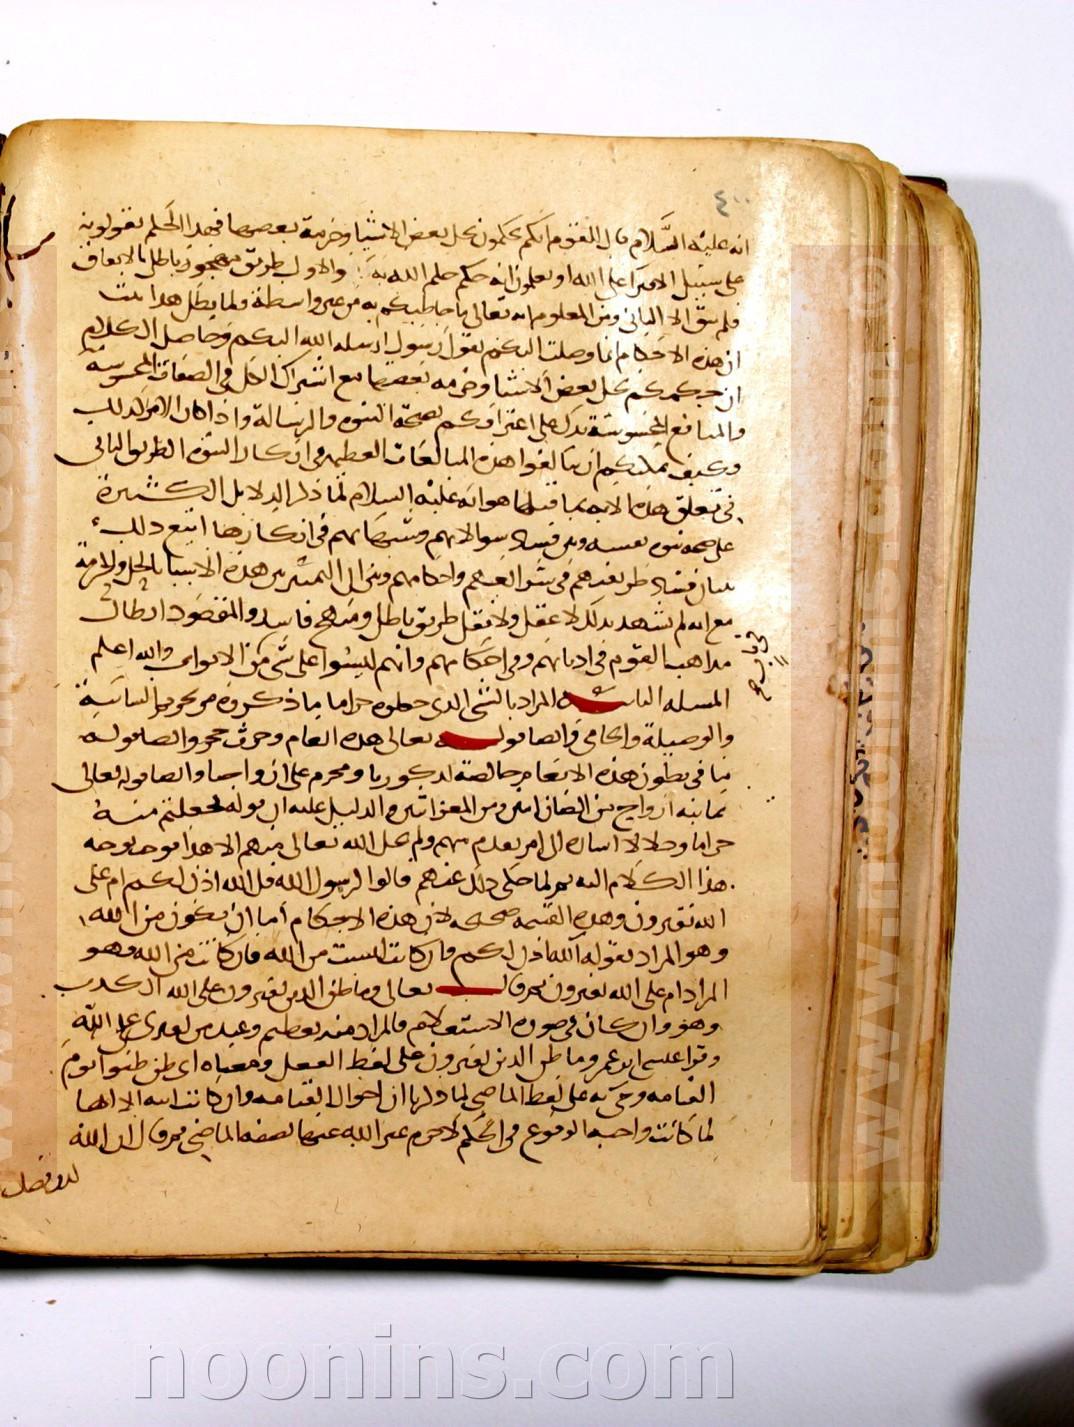 ٤٠٠
انه عليه السلام قال للقوم انكم تحكمون بحل بعض الاشيا وحرمة بعضها فهذا الحكم تقولونه
على سبيل الافترا على الله او تعلمون انه حكم حكم الله به والاول طريق باطل بالاتفاق
فلم يبق الا الثاني ومن المعلوم انه تعالى ما خاطبكم به من غير واسطة ولما بطل هذا ثبت
ان هذه الاحكام انما وصلت اليكم بقول رسول ارسله الله اليكم وحاصل الكلام
ان حكمكم بحل بعض الاشيا وحرمه بعضها مع اشتراك الكل في الصفات المحسوسة
والمنافع المحسوسة يدل على اعترافكم بصحة النبوه والرسالة واذا كان الامر كذلك
فكيف يمكنكم ان تبالغوا هذه المبالغات العظيمه في انكار النبوه الطريق الثاني
في تعلق هذه الايه بما قبلها هو انه عليه السلام لما ذكر الدلايل الكثيرة
على صحه نبوه نفسه وبين فساد سوالاتهم وشبهاتهم في انكارها اتبع ذلك
ببيان فساد طريقتهم في شرايعهم واحكامهم وبين ان التمييز بين هذه الاشيا بالحل والحرمة
مع انه لم يشهد بذلك لا عقل ولا نقل طريق باطل ومنهج فاسد والمقصود ابطال
مذاهب القوم في اديانهم وفي احكامهم وانهم ليسوا على شي من الابواب والله اعلم
المسله الثانيه المراد بالشي الذي جعلوه حراما ما ذكروه من تحريم السائبة
والوصيلة والحامي وايضا قوله تعالى هذه انعام وحرث حجر وايضا قوله
ما في بطون هذه الانعام خالصة لذكورنا ومحرم على ازواجنا وايضا قوله تعالى
ثمانيه ازواج من الضان اثنين ومن المعز اثنين والدليل عليه ان قوله فجعلتم منه
حراما وحلالا اشاره الى امر تقدم منهم ولم يحك الله تعالى عنهم الا هذا فوجب توجه
هذا الكلام اليه ثم لما حكى ذلك عنهم قال للرسول الله قل الله اذن لكم ام على
الله تفترون وهذه القسمه صحيحه لان هذه الاحكام اما ان تكون من الله
وهو المراد بقوله الله اذن لكم فان كانت ليست من الله فان كانت من الله وهو
المراد ام على الله تفترون ثم قال تعالى وما ظن الذين يفترون على الله الكذب
وهو وان كان في صوره الاستعلام فالمراد منه تعظيم وعيد من يفتري على الله
وقرا عيسى بن عمر وما ظن الذين يفترون على لفظ الفعل ومعناه اي ظن ظنوا يوم
القيامه وجي به على لفظ الماضي لما ذكرنا ان احوال القيامه وان كانت اتيه الا انها
لما كانت واجبه الوقوع في الحكم لا جرم عبر الله عنها بصيغه الماضي ثم قال ان الله
لذو فضل
noonins.com